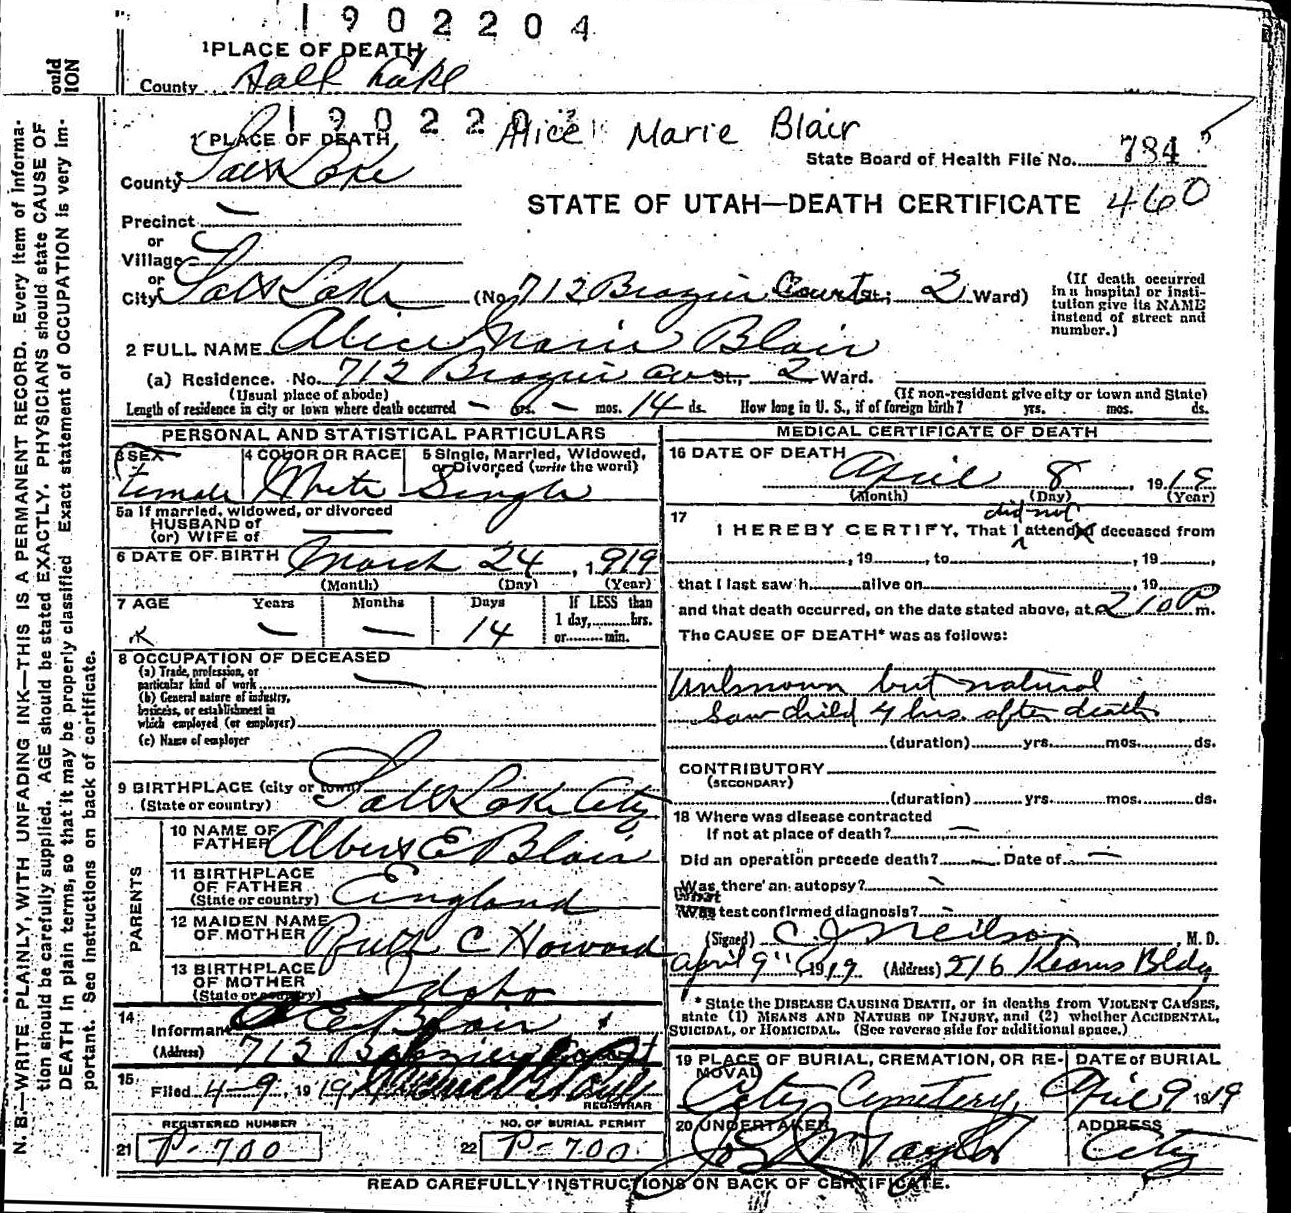 1902204
1 PLACE OF DEATH
County Salt Lake
1902204
Alice Marie Blair
1 PLACE OF DEATH
State Board of Health File No. 784
County Salt Lake
STATE OF UTAH—DEATH CERTIFICATE 460
Precinct —
or
Village
or
City Salt Lake (No. 712 Brazier Court St.; 2 Ward)
(If death occurred in a hospital or institution give its NAME instead of street and number.)
2 FULL NAME Alice Marie Blair
(a) Residence. No. 712 Brazier St., 2 Ward.
(Usual place of abode) (If non-resident give city or town and State)
Length of residence in city or town where death occurred — yrs. — mos. 14 ds. How long in U. S., if of foreign birth? yrs. mos. ds.
PERSONAL AND STATISTICAL PARTICULARS
3 SEX 4 COLOR OR RACE 5 Single, Married, Widowed, or Divorced (write the word)
Female White Single
5a If married, widowed, or divorced
HUSBAND of
(or) WIFE of —
6 DATE OF BIRTH March 24, 1919
(Month) (Day) (Year)
7 AGE Years Months Days If LESS than
1 day, hrs.
or min.
— — 14
8 OCCUPATION OF DECEASED
(a) Trade, profession, or
particular kind of work —
(b) General nature of industry,
business, or establishment in
which employed (or employer)
(c) Name of employer
9 BIRTHPLACE (city or town)
(State or country) Salt Lake City
PARENTS
10 NAME OF
FATHER Albert E Blair
11 BIRTHPLACE
OF FATHER
(State or country) England
12 MAIDEN NAME
OF MOTHER Ruth C Howard
13 BIRTHPLACE
OF MOTHER
(State or country) Idaho
14
Informant A E Blair
(Address) 712 Brazier Court
15
Filed 4-9, 1919
REGISTRAR
REGISTERED NUMBER
21 P-700
NO. OF BURIAL PERMIT
22 P-700
MEDICAL CERTIFICATE OF DEATH
16 DATE OF DEATH
April 8, 1919
(Month) (Day) (Year)
17 did not
I HEREBY CERTIFY, That I attended deceased from
, 19 , to , 19 ,
that I last saw h alive on , 19
and that death occurred, on the date stated above, at 2 10 P m.
The CAUSE OF DEATH* was as follows:
Unknown but natural
Saw child 4 hrs. after death
(duration) yrs. mos. ds.
CONTRIBUTORY
(SECONDARY)
(duration) yrs. mos. ds.
18 Where was disease contracted
if not at place of death? —
Did an operation precede death? — Date of —
Was there an autopsy? -
What
Was test confirmed diagnosis? -
(Signed) C J Neilson M. D.
April 9", 1919 (Address) 216 Kearns Bldg
* State the DISEASE CAUSING DEATH, or in deaths from VIOLENT CAUSES,
state (1) MEANS AND NATURE OF INJURY, and (2) whether ACCIDENTAL,
SUICIDAL, or HOMICIDAL. (See reverse side for additional space.)
19 PLACE OF BURIAL, CREMATION, OR RE-
MOVAL DATE of BURIAL
City Cemetery April 9 1919
20 UNDERTAKER ADDRESS
Taylor City
READ CAREFULLY INSTRUCTIONS ON BACK OF CERTIFICATE.
ould
ION
N. B.—WRITE PLAINLY, WITH UNFADING INK—THIS IS A PERMANENT RECORD. Every item of informa-
tion should be carefully supplied. AGE should be stated EXACTLY. PHYSICIANS should state CAUSE OF
DEATH in plain terms, so that it may be properly classified. Exact statement of OCCUPATION is very im-
portant. See instructions on back of certificate.